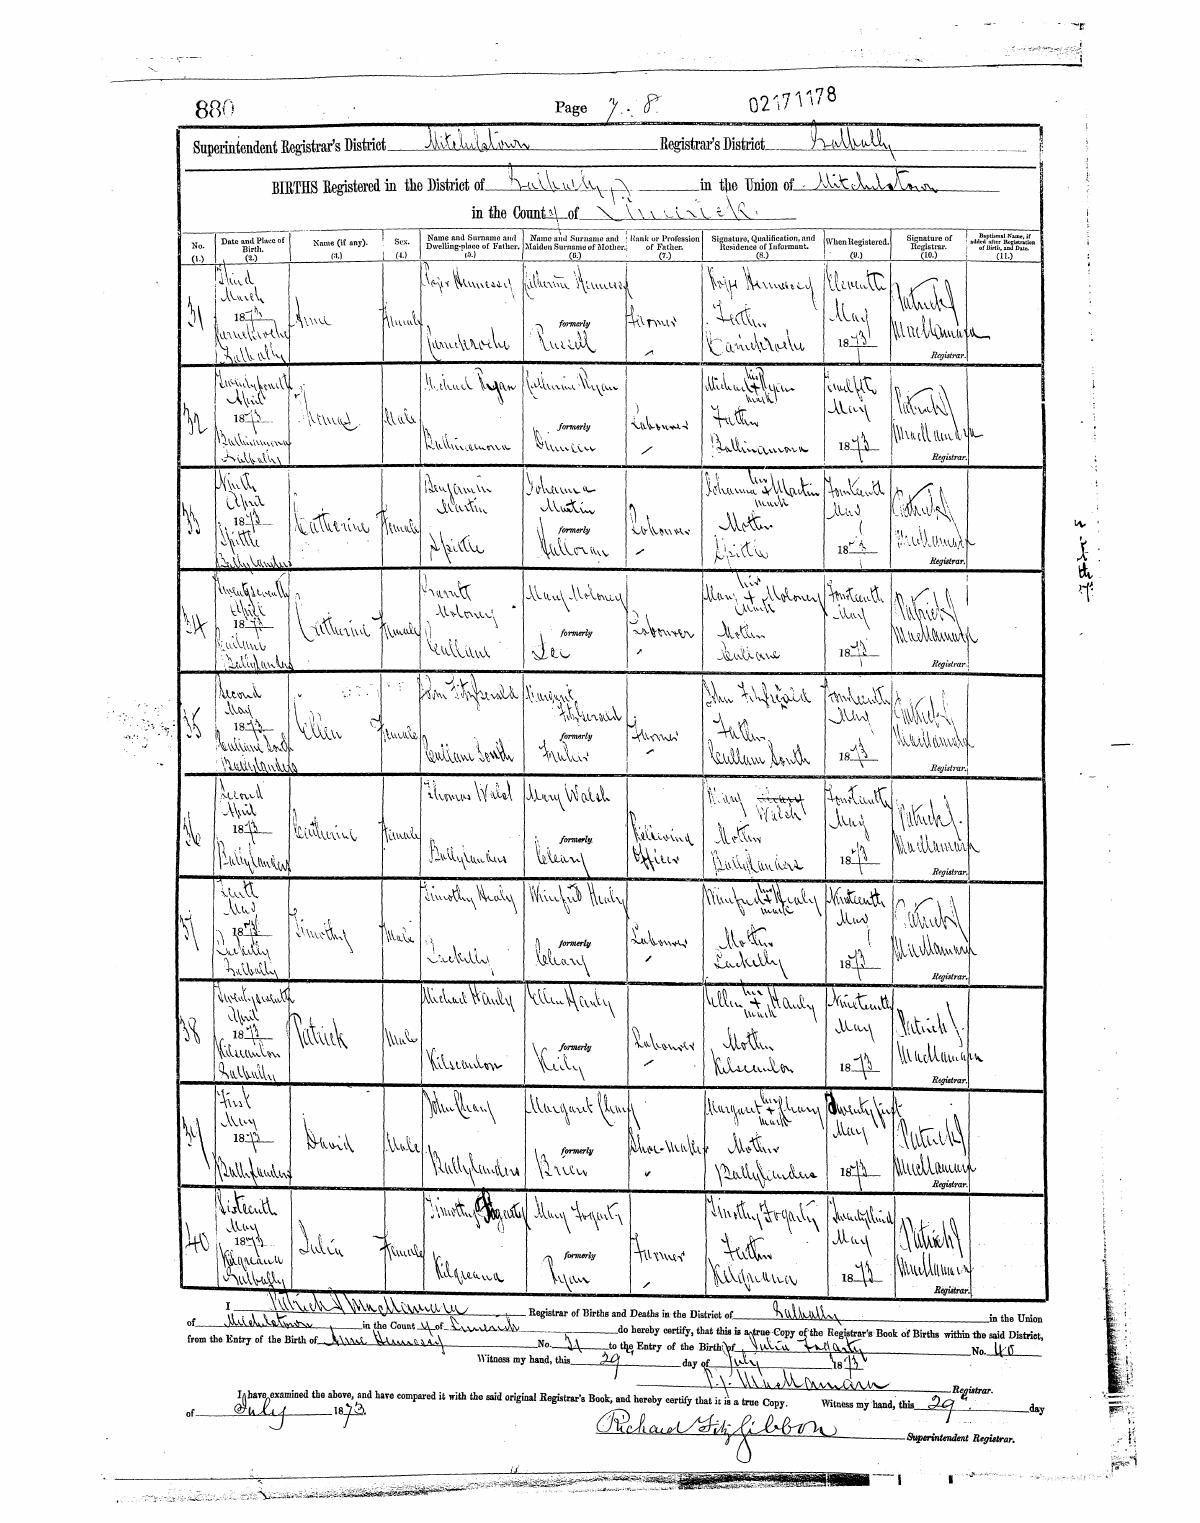 880
Page 7. 8
02171178
Superintendent Registrar's District Mitchelstown Registrar's District Galbally
BIRTHS Registered in the District of Galbally in the Union of Mitchelstown
in the County of Limerick.
No. (1.) Date and Place of Birth. (2.) Name (if any). (3.) Sex. (4.) Name and Surname and Dwelling-place of Father. (5.) Name and Surname and Maiden Surname of Mother. (6.) Rank or Profession of Father. (7.) Signature, Qualification, and Residence of Informant. (8.) When Registered. (9.) Signature of Registrar. (10.) Baptismal Name, if added after Registration of Birth, and Date. (11.)
31 Third March 1873 Carrickroche Galbally
Anne
Female
Roger Hennessy Carrickroche
Catherine Hennessy formerly Russell
Farmer
Roger Hennessy Father Carrickroche
Eleventh May 1873
Patrick J MacNamara Registrar.
32 April 1873 Ballinamona Galbally
Thomas
Male
Michael Ryan Ballinamona
Catherine Ryan formerly
Labourer
Michael Ryan his + mark Father Ballinamona
Twelfth May 1873
Patrick J MacNamara Registrar.
33 Ninth April 1873 Spittle Ballylanders
Catherine
Female
Benjamin Martin Spittle
Johanna Martin formerly Halloran
Labourer
Johanna Martin her + mark Mother Spittle
Fourteenth May 1873
Patrick J MacNamara Registrar.
34 Twenty seventh April 1873 Ballylanders
Catherine
Female
Garrett Moloney
Mary Moloney formerly Lee
Labourer
Mary Moloney her + mark Mother
Fourteenth May 1873
Patrick J MacNamara Registrar.
35 Second May 1873 Cullane South Ballylanders
Ellen
Female
John Fitzgerald Cullane South
Margaret Fitzgerald formerly
Farmer
John Fitzgerald Father Cullane South
Fourteenth May 1873
Patrick J MacNamara Registrar.
36 Second April 1873 Ballylanders
Catherine
Female
Thomas Walsh Ballylanders
Mary Walsh formerly Cleary
Relieving Officer
Mary Walsh Mother Ballylanders
Fourteenth May 1873
Patrick J. MacNamara Registrar.
37 Tenth May 1873 Lackelly Galbally
Timothy
Male
Timothy Healy Lackelly
Winifred Healy formerly Cleary
Labourer
Winifred Healy her + mark Mother Lackelly
Nineteenth May 1873
Patrick J MacNamara Registrar.
38 Twenty seventh April 1873 Kilscanlon Galbally
Patrick
Male
Michael Hanly Kilscanlon
Ellen Hanly formerly Keily
Labourer
Ellen Hanly her + mark Mother Kilscanlon
Nineteenth May 1873
Patrick J. MacNamara Registrar.
39 First May 1873 Ballylanders
David
Male
John Cleary Ballylanders
Margaret Cleary formerly Brien
Shoe maker
Margaret Cleary her + mark Mother Ballylanders
Twenty first May 1873
Patrick J MacNamara Registrar.
40 Sixteenth May 1873 Kilgreana Galbally
Julia
Female
Timothy Fogarty Kilgreana
Mary Fogarty formerly Ryan
Farmer
Timothy Fogarty Father Kilgreana
May 1873
Patrick J MacNamara Registrar.
I Patrick J MacNamara Registrar of Births and Deaths in the District of Galbally in the Union
of Mitchelstown in the County of Limerick do hereby certify, that this is a true Copy of the Registrar's Book of Births within the said District,
from the Entry of the Birth of Anne Hennessy No. 31 to the Entry of the Birth of Julia Fogarty No. 40
Witness my hand, this 29 day of July 1873
P. J. MacNamara Registrar.
I have examined the above, and have compared it with the said original Registrar's Book, and hereby certify that it is a true Copy. Witness my hand, this 29th day
of July 1873.
Richard Fitzgibbon Superintendent Registrar.